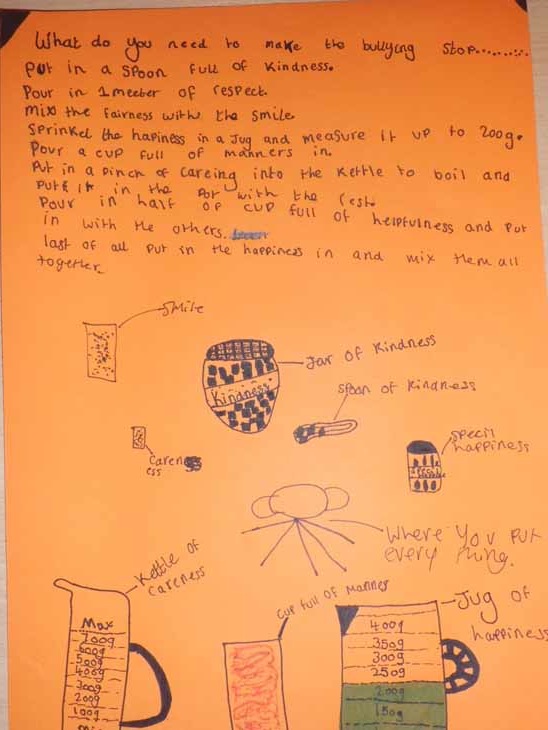 What do you need to make the bullying stop..........
Put in a spoon full of kindness.
Pour in 1 meeter of respect.
Mix the fairness with the smile.
Sprinkel the hapiness in a Jug and measure it up to 200g.
Pour a cup full of manners in.
Put in a pinch of careing into the kettle to boil and
Put it in the Pot with the rest.
Pour in half of cup full of helpfulness and put
in with the others.
last of all put in the happiness in and mix them all
together.
Smile
Jar of kindness
Kindness
Spoon of kindness
Careness
ess
specil
happiness
specil
Where you put
every thing.
Kettle of
careness
Cup full of manner
Jug of
happiness
Max
700g
600g
500g
400g
300g
200g
100g
400g
350g
300g
250g
200g
150g